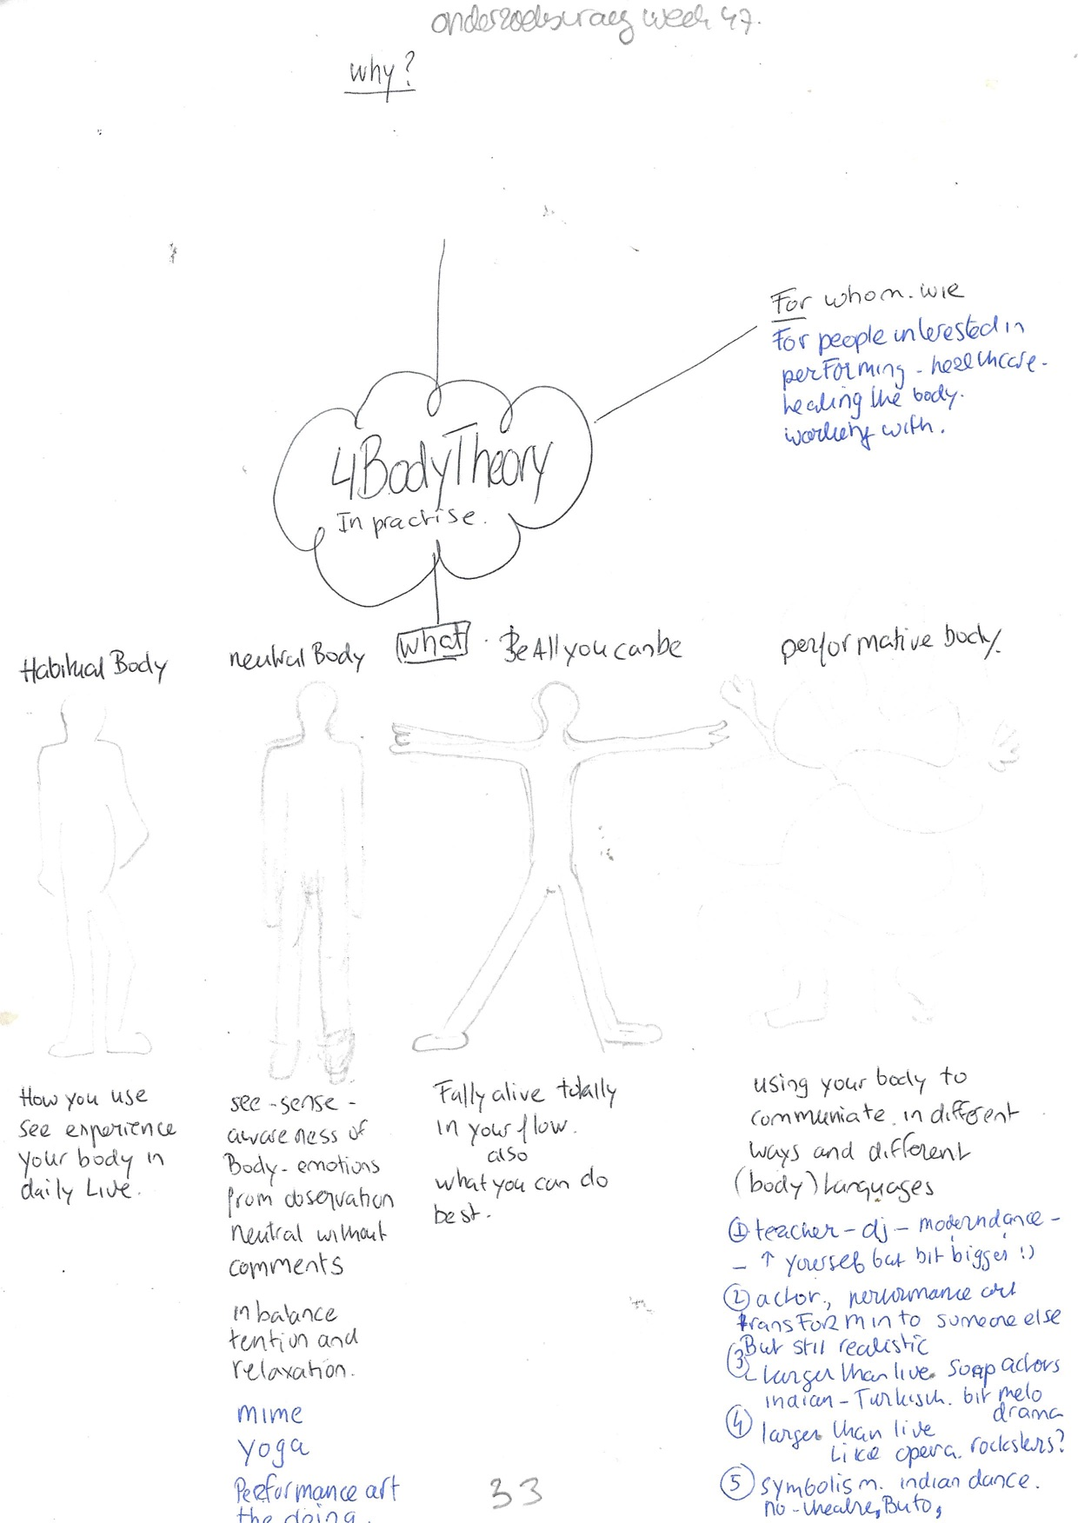 onderzoeksvraag week 47.
why?
For whom. wie
For people interested in
performing - healthcare -
healing the body.
working with.
4BodyTheory
In practise.
what
Habitual Body
neutral Body
Be All you can be
performative body.
How you use
see experience
your body in
daily Live.
see - sense -
awareness of
Body - emotions
from observation
neutral without
comments
in balance
tention and
relaxation.
mime
yoga
Performance art
the doing.
Fully alive totally
in your flow.
also
what you can do
best.
using your body to
communiate. in different
ways and different
(body) languages
① teacher - dj - moderndance -
- ↑ yourself but bit bigger :)
② actor., performance art
transForm in to someone else
But still realistic
③ larger than live. soap actors
indian - Turkisch. bit melo
drama
④ larger than live
Like opera. rockstars?
⑤ symbolism. indian dance.
no - theatre, Buto,
33